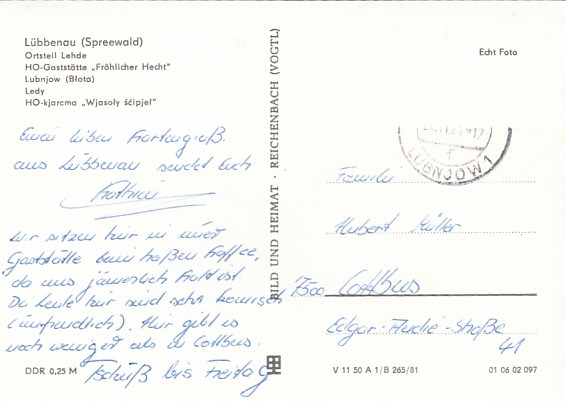 Lübbenau (Spreewald)
Ortsteil Lehde
HO-Gaststätte „Fröhlicher Hecht"
Lubnjow (Błota)
Ledy
HO-kjarcma „Wjasoły šćipjel"
Einen lieben Kartengruß
aus Lübbenau sendet Euch
Kathrin
Wir sitzen hier in einer
Gaststätte beim heißen Kaffee,
da uns jämmerlich kalt ist.
Die Leute hier sind sehr komisch
(unfreundlich). Hier gibt es
noch weniger als in Cottbus.
Tschüß bis Freitag
DDR 0,25 M
BILD UND HEIMAT · REICHENBACH (VOGTL)
Echt Foto
LUBNJOW 1
Familie
Hubert Müller
7500 Cottbus
Edgar-André-Straße
41
V 11 50 A 1/B 265/81
01 06 02 097